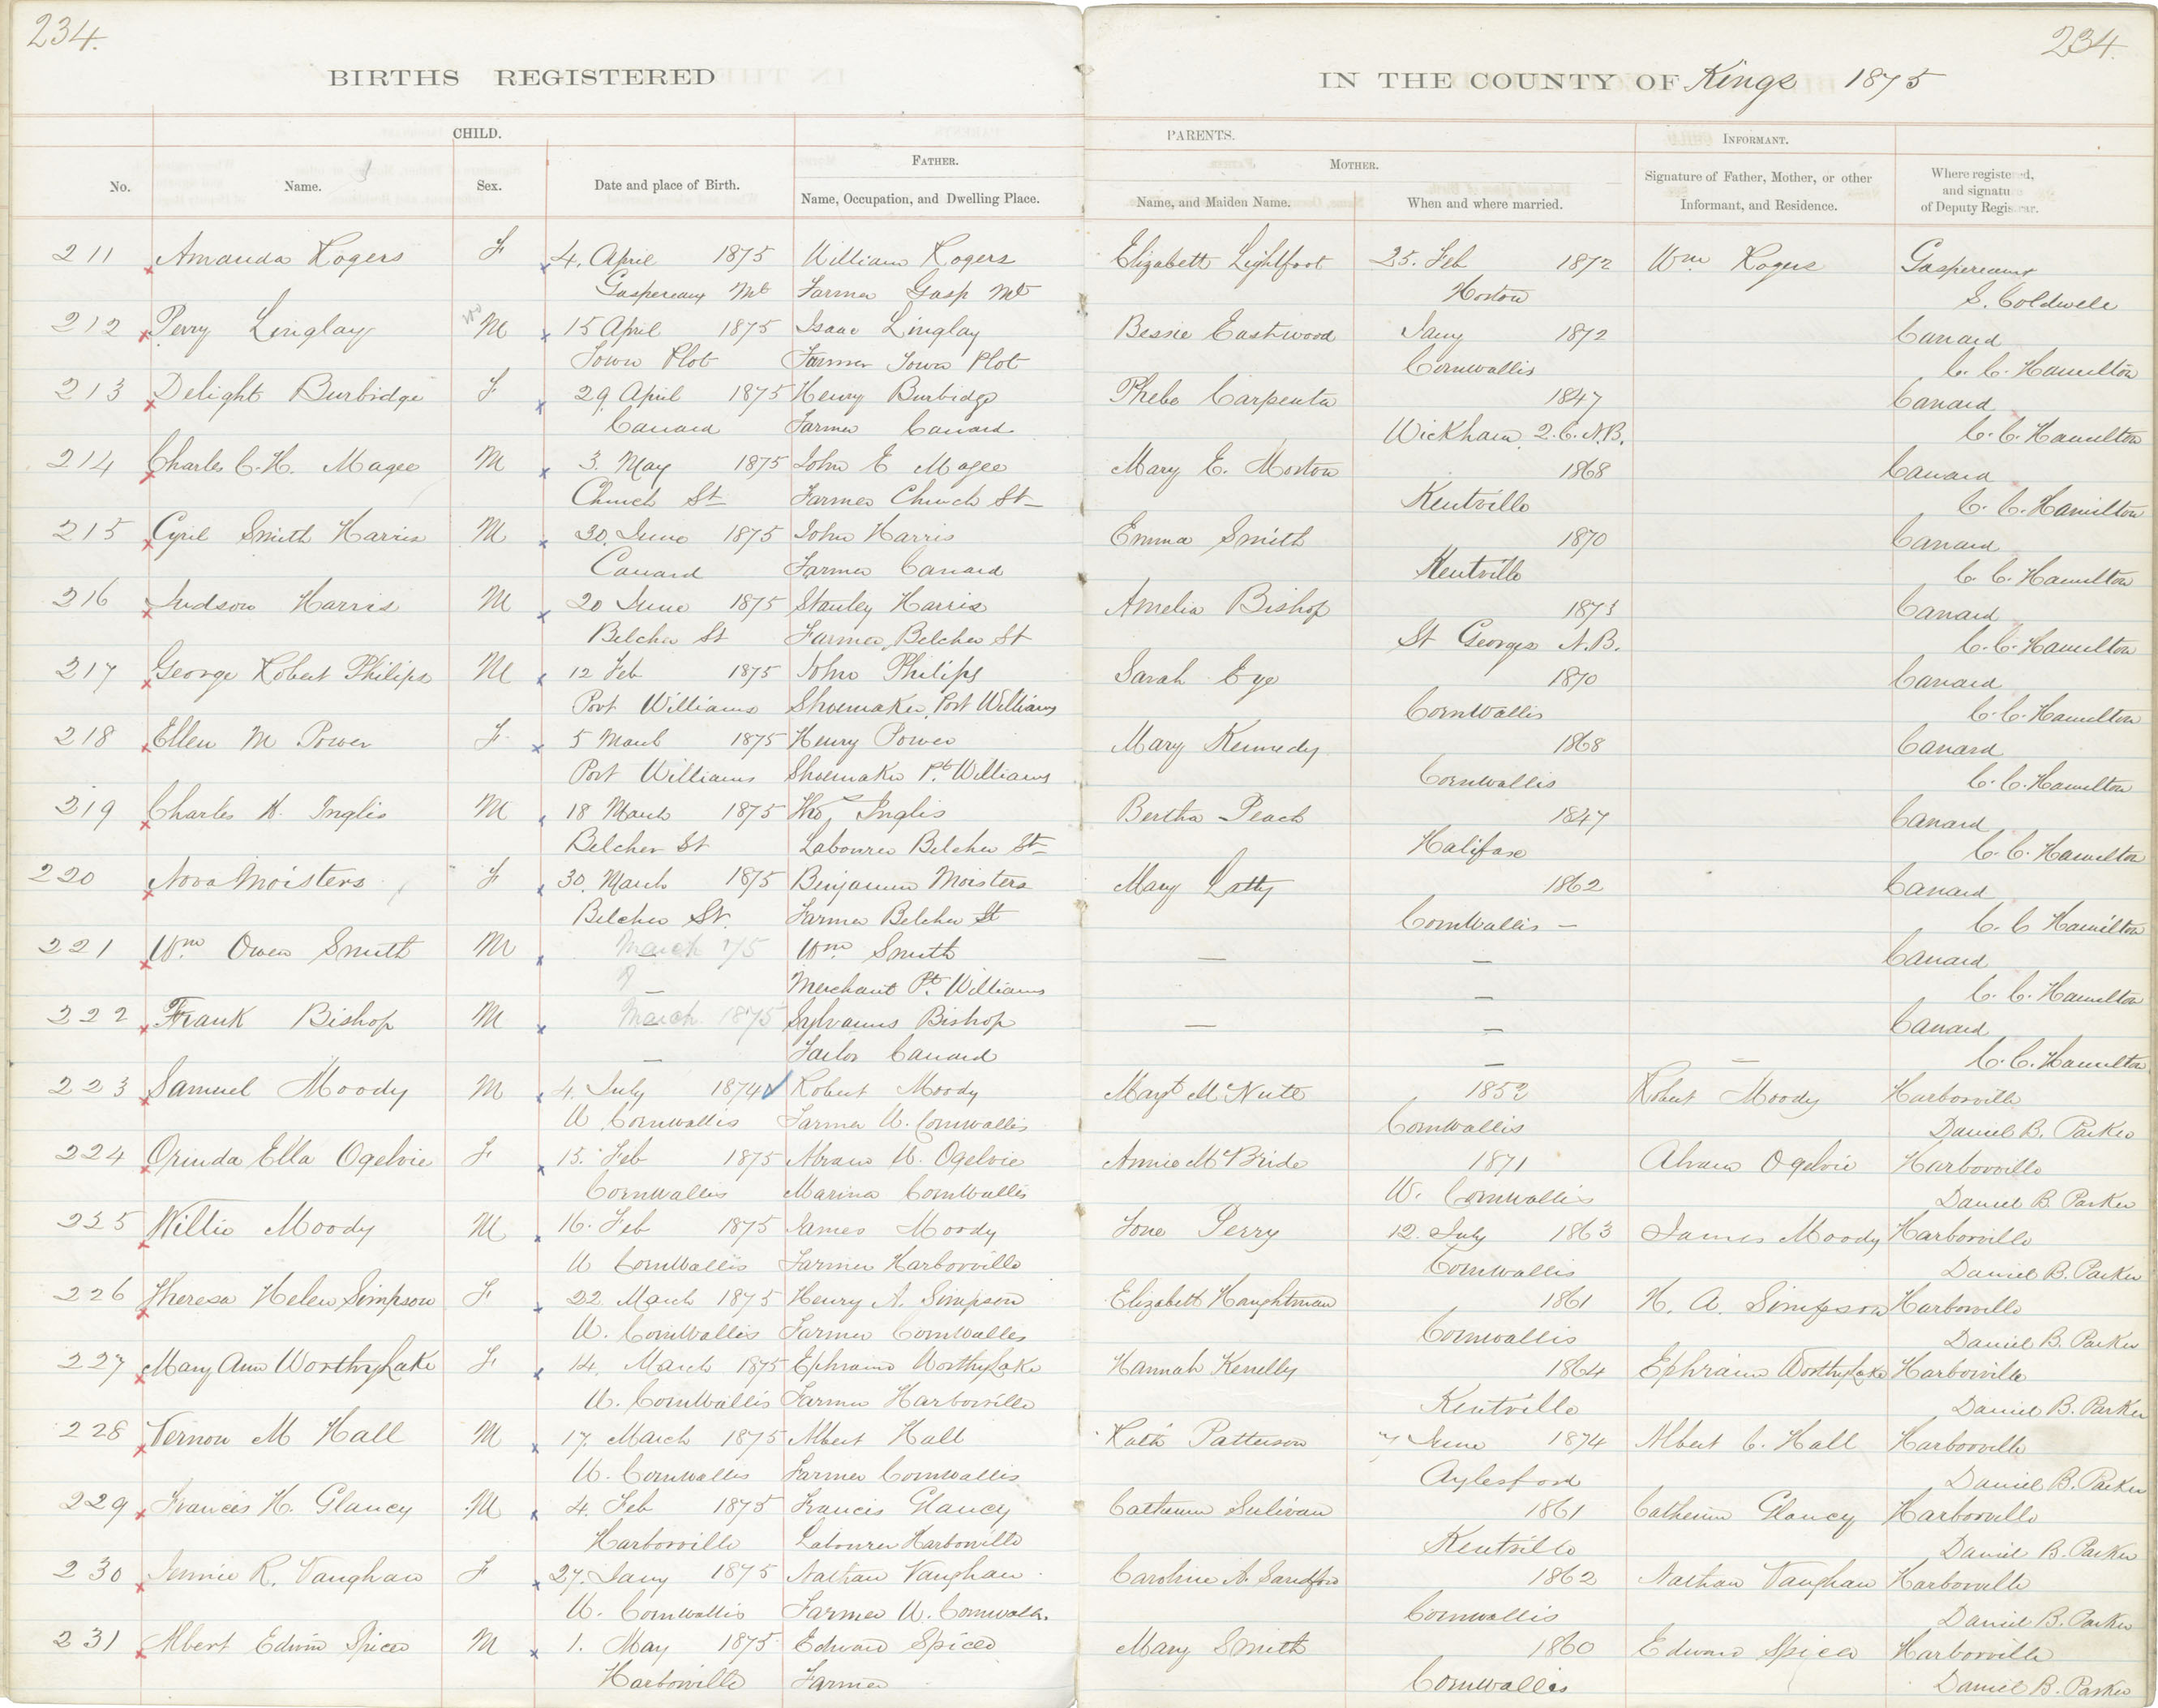 234.
234.
BIRTHS REGISTERED
IN THE COUNTY OF Kings 1875
CHILD.
PARENTS.
INFORMANT.
FATHER.
MOTHER.
No.
Name.
Sex.
Date and place of Birth.
Name, Occupation, and Dwelling Place.
Name, and Maiden Name.
When and where married.
Signature of Father, Mother, or other
Informant, and Residence.
Where registered,
and signature
of Deputy Registrar.
211 Amanda Rogers F 4. April 1875 William Rogers Elizabeth Lightfoot 25. Feb 1872 Wm Rogers Gaspereaux
Gaspereaux Mt Farmer Gasp Mt Horton S. Coldwell
212 Perry Linglay M 15 April 1875 Isaac Linglay Bessie Eastwood Jany 1872 Canard
Town Plot Farmer Town Plot Cornwallis C. C. Hamilton
213 Delight Burbidge F 29 April 1875 Henry Burbidge Phebe Carpenter 1847 Canard
Canard Farmer Canard Wickham 2. C. N.B. C. C. Hamilton
214 Charles C. H. Magee M 3. May 1875 John E Magee Mary E. Morton 1868 Canard
Church St Farmer Church St Kentville C. C. Hamilton
215 Cyril Smith Harris M 30. June 1875 John Harris Emma Smith 1870 Canard
Canard Farmer Canard Kentville C. C. Hamilton
216 Judson Harris M 20 June 1875 Stanley Harris Amelia Bishop 1873 Canard
Belcher St Farmer, Belcher St St Georges N.B. C. C. Hamilton
217 George Robert Philips M 12 Feb 1875 John Philips Sarah Eye 1870 Canard
Port Williams Shoemaker, Port Williams Cornwallis C. C. Hamilton
218 Ellen M Power F 5 March 1875 Henry Power Mary Kennedy 1868 Canard
Port Williams Shoemaker Pt. Williams Cornwallis C. C. Hamilton
219 Charles H. Inglis M 18 March 1875 Thos Inglis Bertha Peach 1847 Canard
Belcher St Labourer Belcher St Halifax C. C. Hamilton
220 Nova Moisters F 30. March 1875 Benjamin Moisters Mary Latty 1862 Canard
Belcher St. Farmer Belcher St Cornwallis — C. C Hamilton
221 Wm Owen Smith M March 1/5 Wm Smith — — Canard
? — Merchant Pt. Williams — C. C. Hamilton
222 Frank Bishop M March 1875 Sylvanus Bishop — — Canard
— Tailor Canard — — C. C. Hamilton
223 Samuel Moody M 4. July 1874 Robert Moody Margt McNutt 1852 Robert Moody Harborville
W Cornwallis Farmer W. Cornwallis Cornwallis Daniel B. Parker
224 Orinda Ella Ogelvie F 15. Feb 1875 Abram W. Ogelvie Annie McBride 1871 Abram Ogelvie Harborville
Cornwallis Marina Cornwallis W. Cornwallis Daniel B. Parker
225 Willie Moody M 16. Feb 1875 James Moody Ione Perry 12. July 1863 James Moody Harborville
W Cornwallis Farmer Harborville Cornwallis Daniel B. Parker
226 Theresa Helen Simpson F 22. March 1875 Henry A. Simpson Elizabeth Haughtman 1861 H. A. Simpson Harborville
W. Cornwallis Farmer Cornwallis Cornwallis Daniel B. Parker
227 Mary Ann WorthyLake F 14. March 1875 Ephraim WorthyLake Hannah Kenelly 1864 Ephraim WorthyLake Harborville
W. Cornwallis Farmer Harborville Kentville Daniel B. Parker
228 Vernon M Hall M 17. March 1875 Albert Hall Kath Patterson 7 June 1874 Albert C. Hall Harborville
W. Cornwallis Farmer Cornwallis Aylesford Daniel B. Parker
229 Francis H. Glancy M 4. Feb 1875 Francis Glancy Catherine Sulivan 1861 Catherine Glancy Harborville
Harborville Labourer Harborville Kentville Daniel B. Parker
230 Jennie R. Vaughan F 27. Jany 1875 Nathan Vaughan Caroline A. Sandford 1862 Nathan Vaughan Harborville
W. Cornwallis Farmer W. Cornwalls. Cornwallis Daniel B. Parker
231 Albert Edwin Spicer M 1. May 1875 Edward Spicer Mary Smith 1860 Edward Spicer Harborville
Harborville Farmer Cornwallis Daniel B. Parker